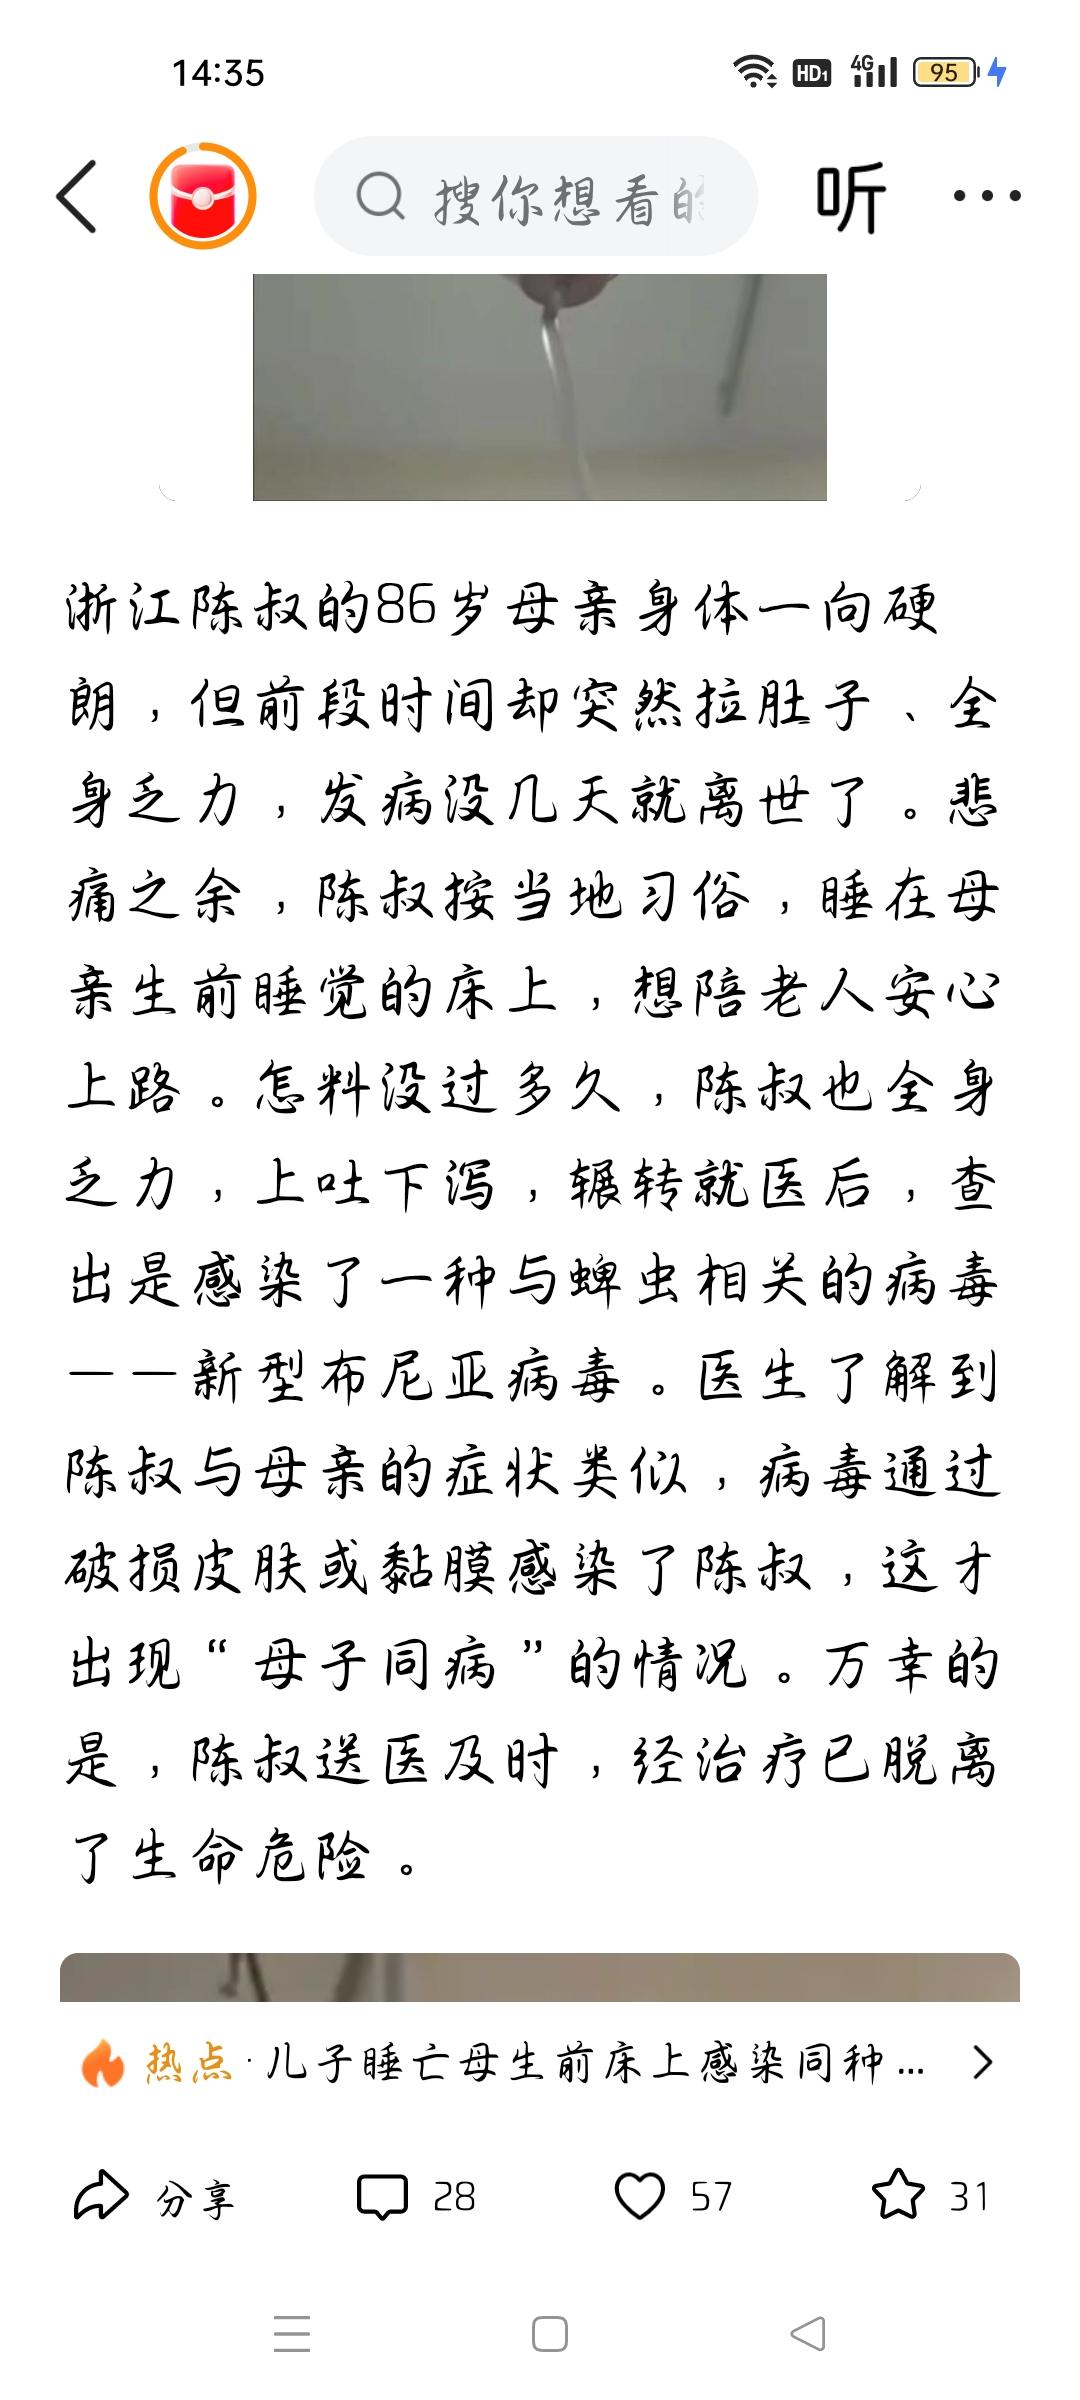 14:35
HD1 4G 95
搜你想看的
听
浙江陈叔的86岁母亲身体一向硬
朗，但前段时间却突然拉肚子、全
身乏力，发病没几天就离世了。悲
痛之余，陈叔按当地习俗，睡在母
亲生前睡觉的床上，想陪老人安心
上路。怎料没过多久，陈叔也全身
乏力，上吐下泻，辗转就医后，查
出是感染了一种与蜱虫相关的病毒
——新型布尼亚病毒。医生了解到
陈叔与母亲的症状类似，病毒通过
破损皮肤或黏膜感染了陈叔，这才
出现“母子同病”的情况。万幸的
是，陈叔送医及时，经治疗已脱离
了生命危险。
热点·儿子睡亡母生前床上感染同种...
分享 28 57 31